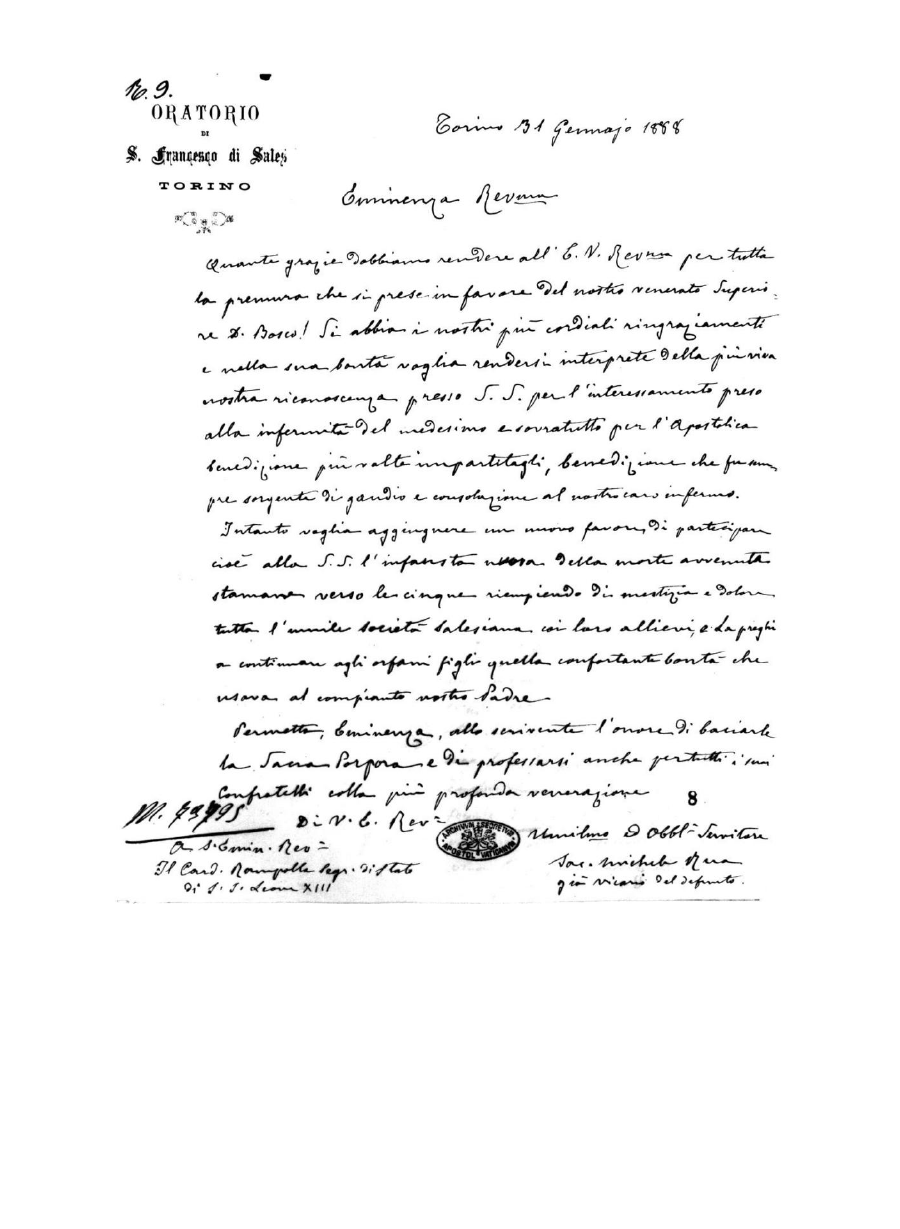 R. 9.
ORATORIO
DI
S. Francesco di Sales
TORINO
Torino 31 Gennajo 1888
Eminenza Revma
Quante grazie dobbiamo rendere all' E. V. Revma per tutta
la premura che si prese in favore del nostro venerato Superio-
re D. Bosco! Si abbia i nostri più cordiali ringraziamenti
e nella sua bontà voglia rendersi interprete della più viva
nostra riconoscenza presso S. S. per l'interessamento preso
alla infermità del medesimo e sovratutto per l'Apostolica
benedizione più volte impartitagli, benedizione che fu sem
pre sorgente di gaudio e consolazione al nostro caro infermo.
Intanto voglia aggiungere un nuovo favore, di partecipare
cioè alla S. S. l'infausta nuova della morte avvenuta
stamane verso le cinque riempiendo di mestizia e dolore
tutta l'umile società Salesiana coi loro allievi, e La preghi
a continuare agli orfani figli quella confortante bontà che
usava al compianto nostro Padre
Permetta, Eminenza, allo scrivente l'onore di baciarle
la Sacra Porpora e di professarsi anche per tutti i suoi
Confratelli colla più profonda venerazione
8
M. 73795
Di V. E. Rev
ARCHIVUM SECRETUM APOSTOL VATICANUM
Umilmo ed Obbl Servitore
A S. Emin. Rev
Il Card. Rampolla Segr. di Stato
di S. S. Leone XIII
Sac. Michele Rua
già vicario del defunto.